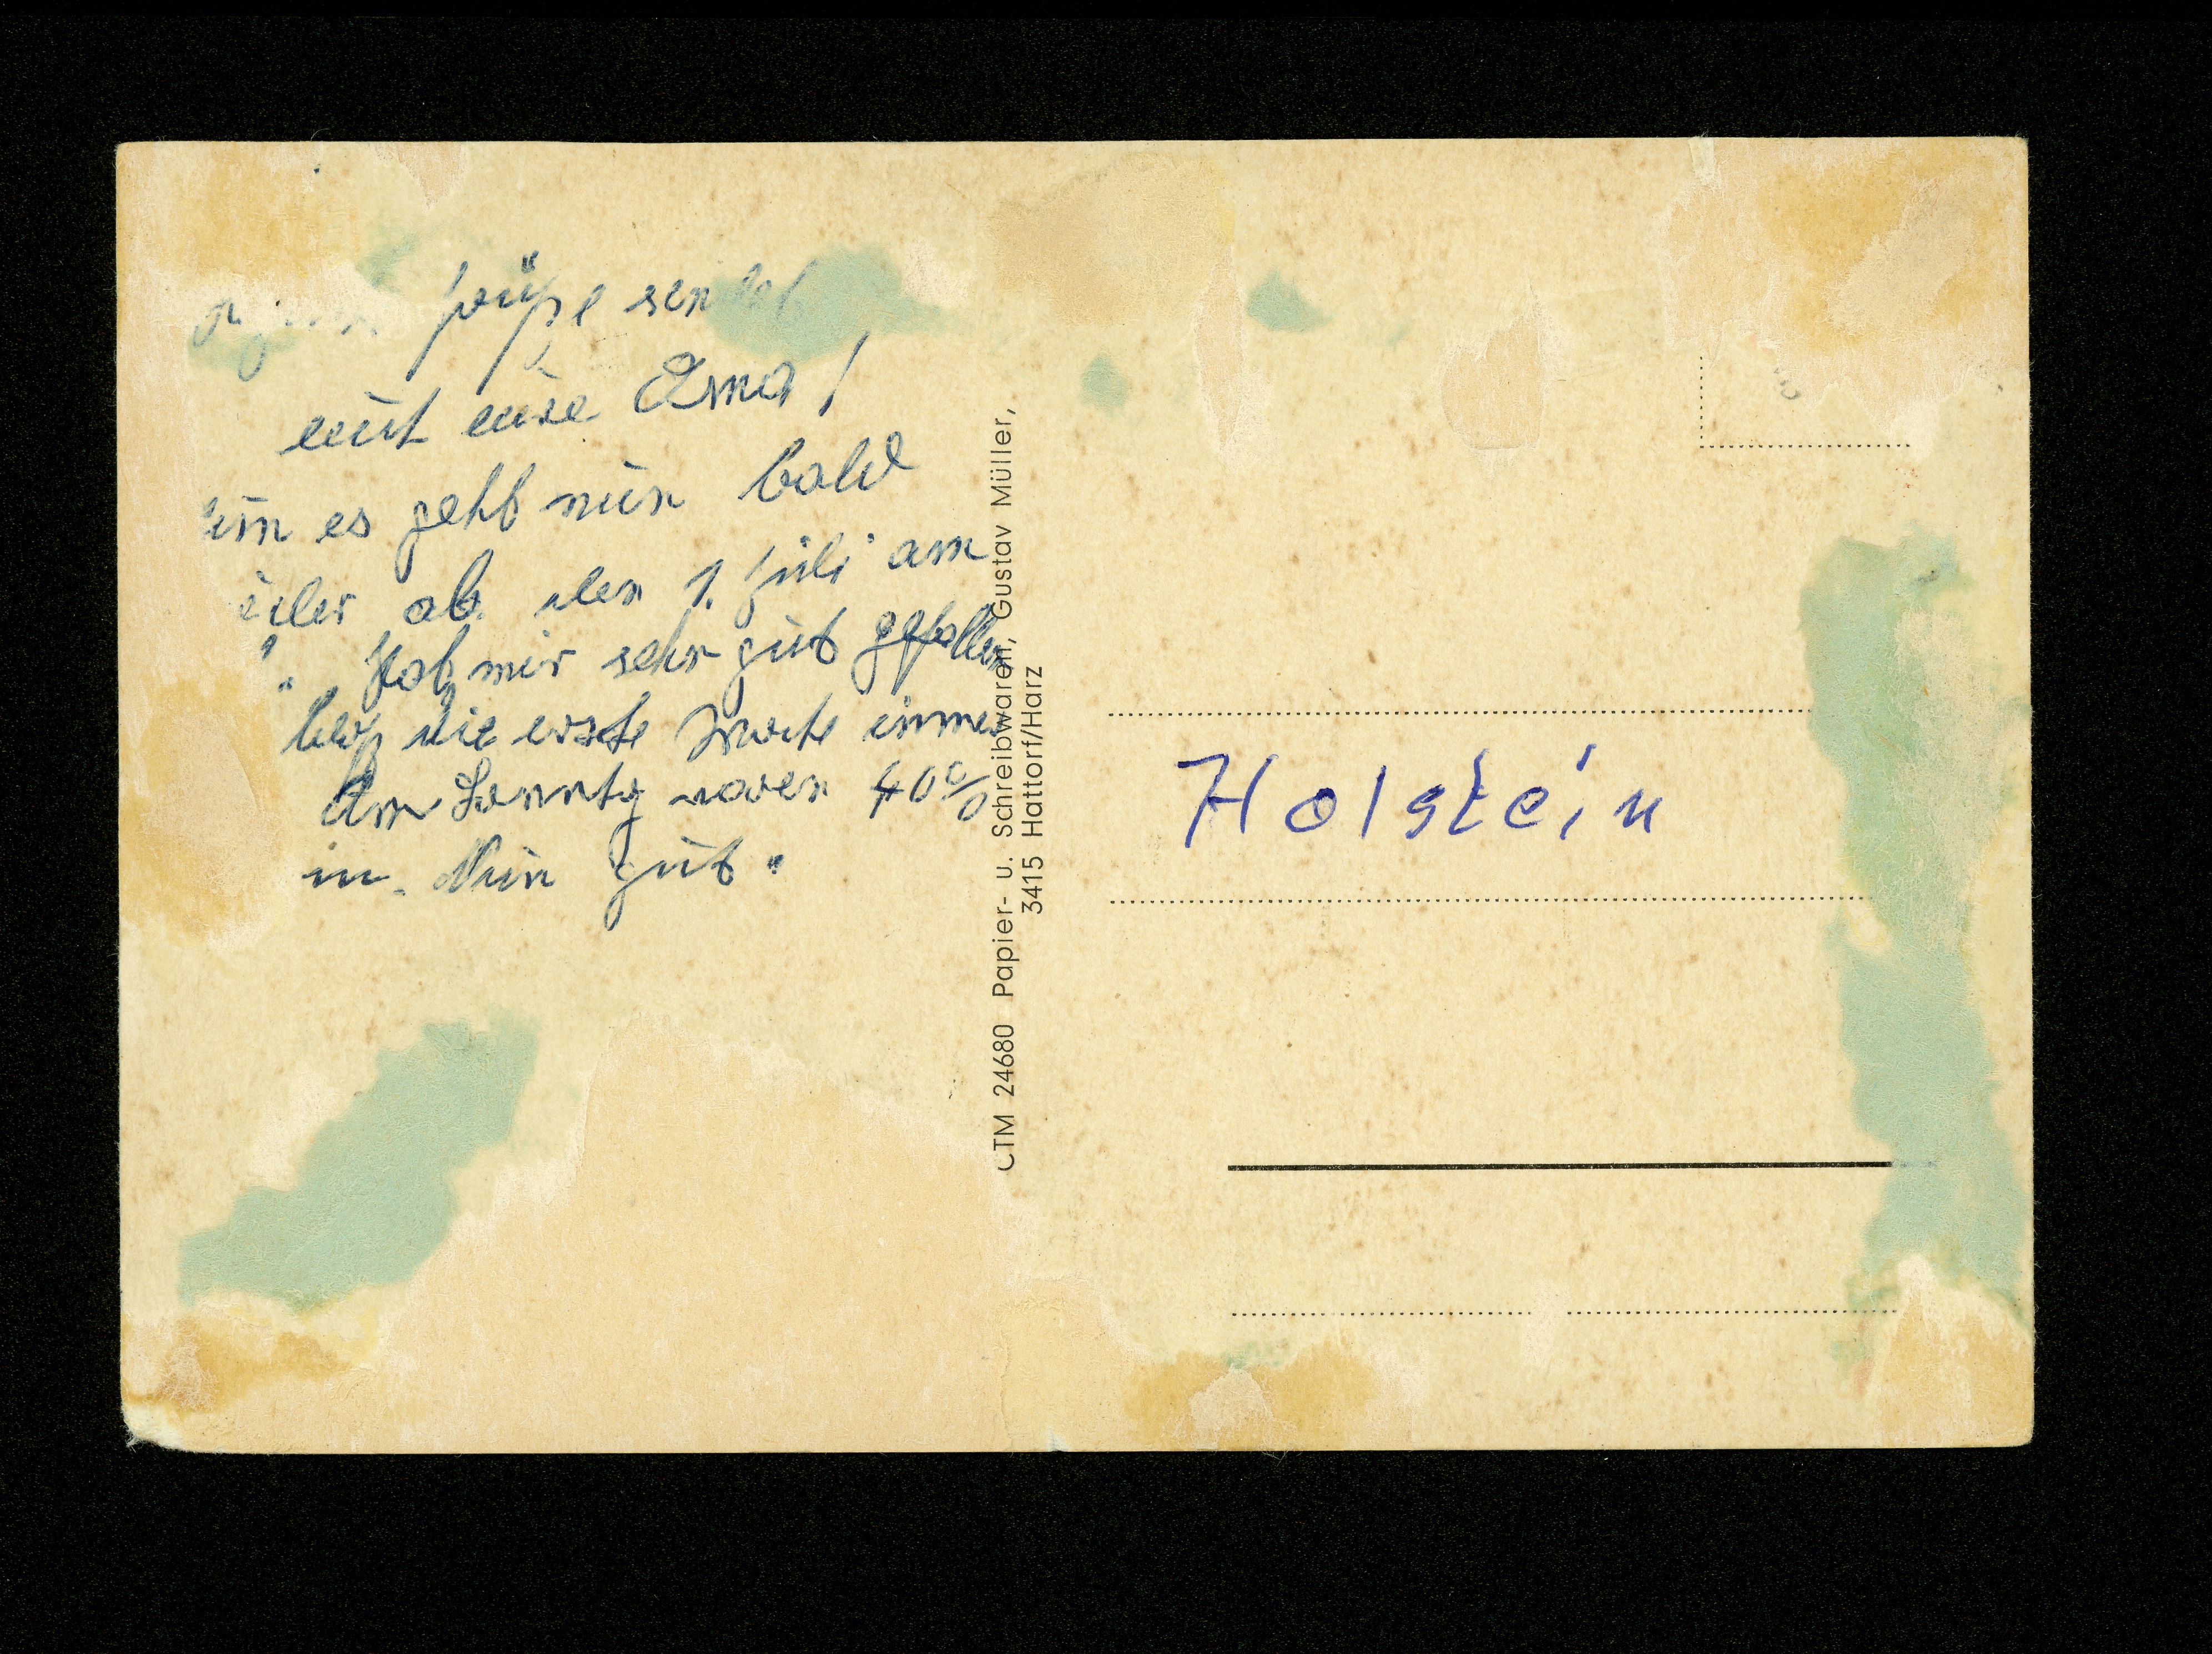 grüße sendet
euch eure Oma!
nun es geht nun bald
ab den 1. Juli am
Hat mir sehr gut gefallen
bloß die erste Woche immer
Am Sonntg waren 40%
in. Nun gut.
CTM 24680 Papier- u. Schreibwaren, Gustav Müller,
3415 Hattorf/Harz
Holstein